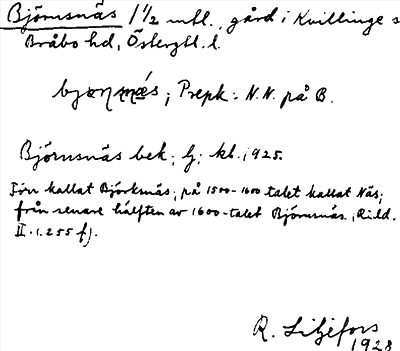 Björnsnäs 1 1/2 mtl., gård i Kvillinge s
Bråbo hd, Östergtl. l.
Prepk: N.N. på B.
Björnsnäs bek; G; kb. 1925.
Förr kallat Björknäs; på 1500-1600 talet kallat Näs;
från senare hälften av 1600-talet Björnsnäs (Ridd.
II. 1. 255 f).
R. Liljefors
1928